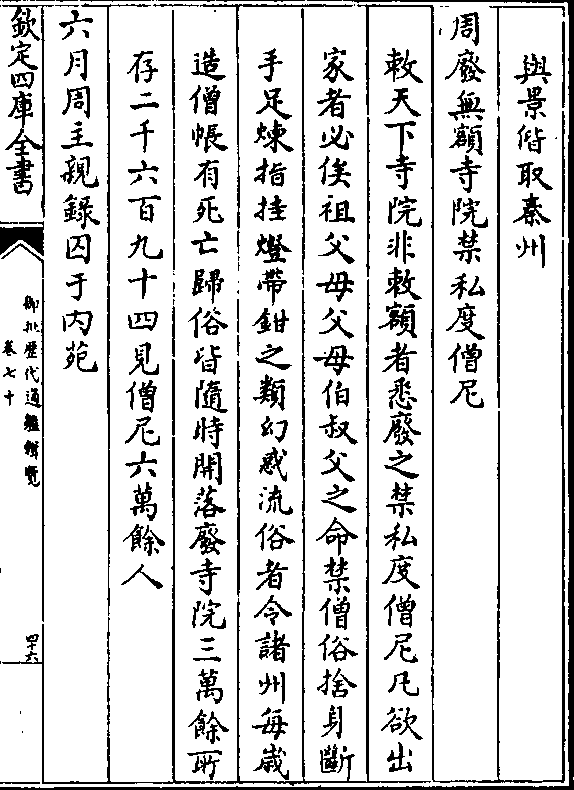 與景偕取秦州
周廢無額寺院禁私度僧尼
敕天下寺院非敕額者悉廢之禁私度僧尼凡欲出
家者必俟祖父母父母伯叔父之命禁僧俗捨身斷
手足煉指挂燈帶鉗之類幻惑流俗者令諸州每歲
造僧帳有死亡歸俗皆隨時開落廢寺院三萬餘所
存二千六百九十四見僧尼六萬餘人
六月周主親録囚于内苑
欽定四庫全書
御批歴代通鑑輯覽
卷七十
四十六